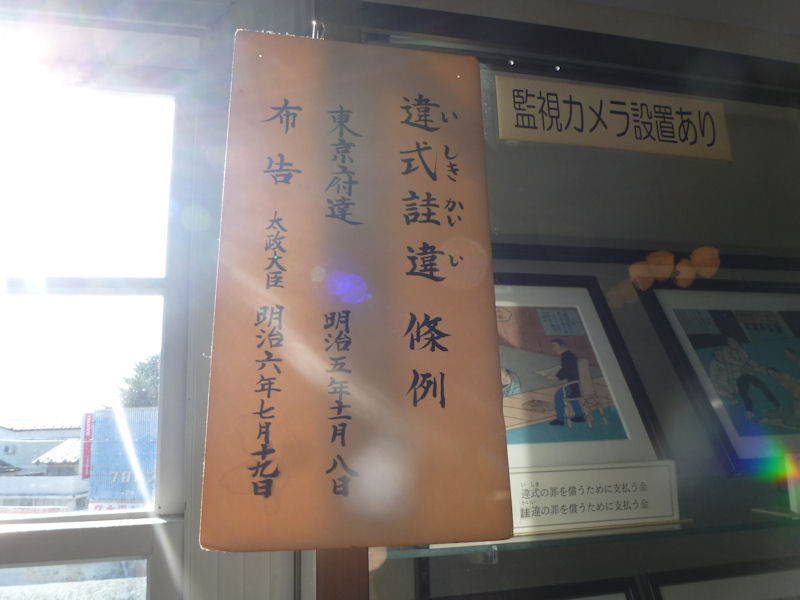 違式詿違條例
いしきかいい
東京府達 明治五年十一月八日
布告 太政大臣 明治六年七月十九日
監視カメラ設置あり
いしき
違式の罪を償うために支払う金
かいい
詿違の罪を償うために支払う金